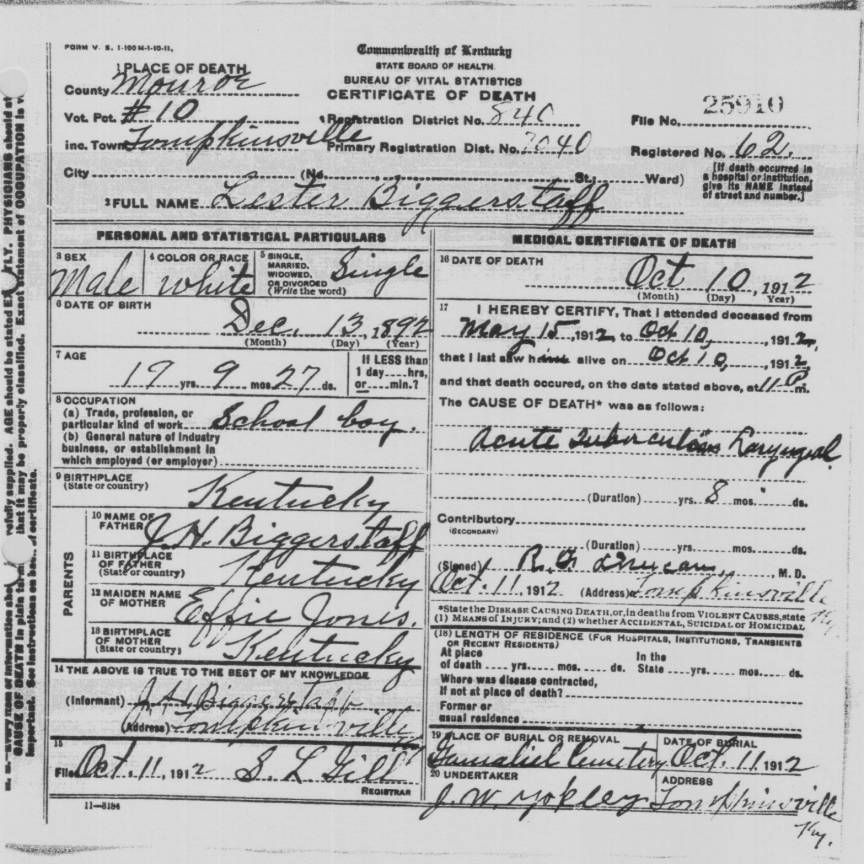 FORM V. S. 1-100 M-1-10-11,
Commonwealth of Kentucky
STATE BOARD OF HEALTH.
BUREAU OF VITAL STATISTICS
CERTIFICATE OF DEATH
1 PLACE OF DEATH
County Monroe
Vot. Pct. #10
Registration District No. 840
File No. 25910
inc. Town Tompkinsville
Primary Registration Dist. No. 7040
Registered No. 62.
City (No. St.; Ward)
[If death occurred in a hospital or institution, give its NAME instead of street and number.]
2 FULL NAME Lester Biggerstaff
PERSONAL AND STATISTICAL PARTICULARS
3 SEX Male
4 COLOR OR RACE white
5 SINGLE, MARRIED, WIDOWED, OR DIVORCED (Write the word) Single
6 DATE OF BIRTH
Dec. 13, 1892
(Month) (Day) (Year)
7 AGE
19 yrs. 9 mos. 27 ds.
If LESS than 1 day....hrs, or....min.?
8 OCCUPATION
(a) Trade, profession, or particular kind of work School boy.
(b) General nature of industry business, or establishment in which employed (or employer)
9 BIRTHPLACE
(State or country) Kentucky
PARENTS
10 NAME OF FATHER J.H. Biggerstaff
11 BIRTHPLACE OF FATHER (State or country) Kentucky
12 MAIDEN NAME OF MOTHER Effie Jones.
13 BIRTHPLACE OF MOTHER (State or country) Kentucky
14 THE ABOVE IS TRUE TO THE BEST OF MY KNOWLEDGE
(Informant) J.H. Biggerstaff
(Address) Tompkinsville Ky
15
Filed Oct. 11, 1912 S. L. Gill
REGISTRAR
11—3184
MEDICAL CERTIFICATE OF DEATH
16 DATE OF DEATH
Oct 10, 1912
(Month) (Day) (Year)
17 I HEREBY CERTIFY, That I attended deceased from
May 15, 1912 to Oct 10, 1912,
that I last saw him alive on Oct 10, 1912
and that death occured, on the date stated above, at 11 P m.
The CAUSE OF DEATH* was as follows:
Acute Tuberculosis Laryngeal
(Duration) yrs. 8 mos ds.
Contributory
(SECONDARY)
(Duration) yrs. mos. ds.
(Signed) R. F. , M. D.
Oct. 11, 1912 (Address) Tompkinsville Ky.
*State the DISEASE CAUSING DEATH, or, in deaths from VIOLENT CAUSES, state
(1) MEANS OF INJURY; and (2) whether ACCIDENTAL, SUICIDAL OR HOMICIDAL
(18) LENGTH OF RESIDENCE (FOR HOSPITALS, INSTITUTIONS, TRANSIENTS OR RECENT RESIDENTS)
At place of death yrs. mos. ds. In the State yrs. mos. ds.
Where was disease contracted, if not at place of death?
Former or usual residence
19 PLACE OF BURIAL OR REMOVAL
Gamaliel Cemetery
DATE OF BURIAL
Oct. 11, 1912
20 UNDERTAKER
J. W. Yokley
ADDRESS
Tompkinsville Ky.